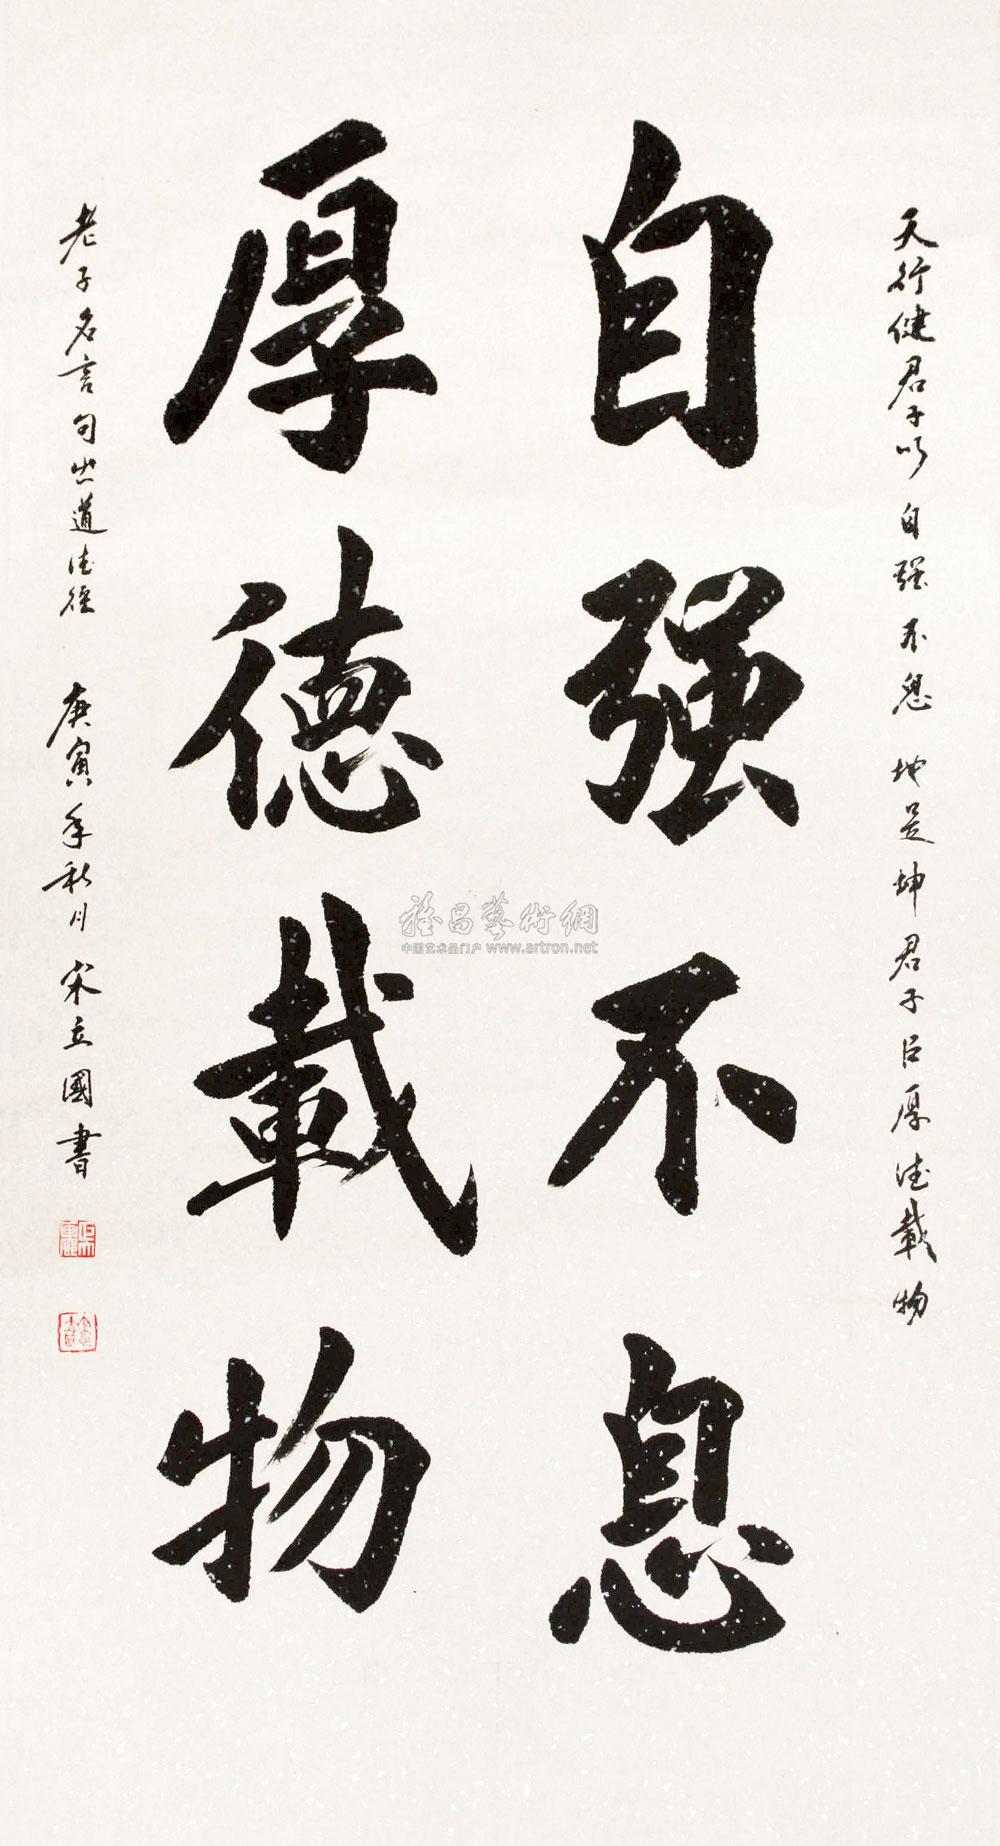 天行健君子以自强不息 地是坤君子以厚德載物
自强不息
厚德載物
老子名言句出道德經 庚寅年秋月 宋立國書
雅昌藝術網
中国艺术品门户 www.artron.net